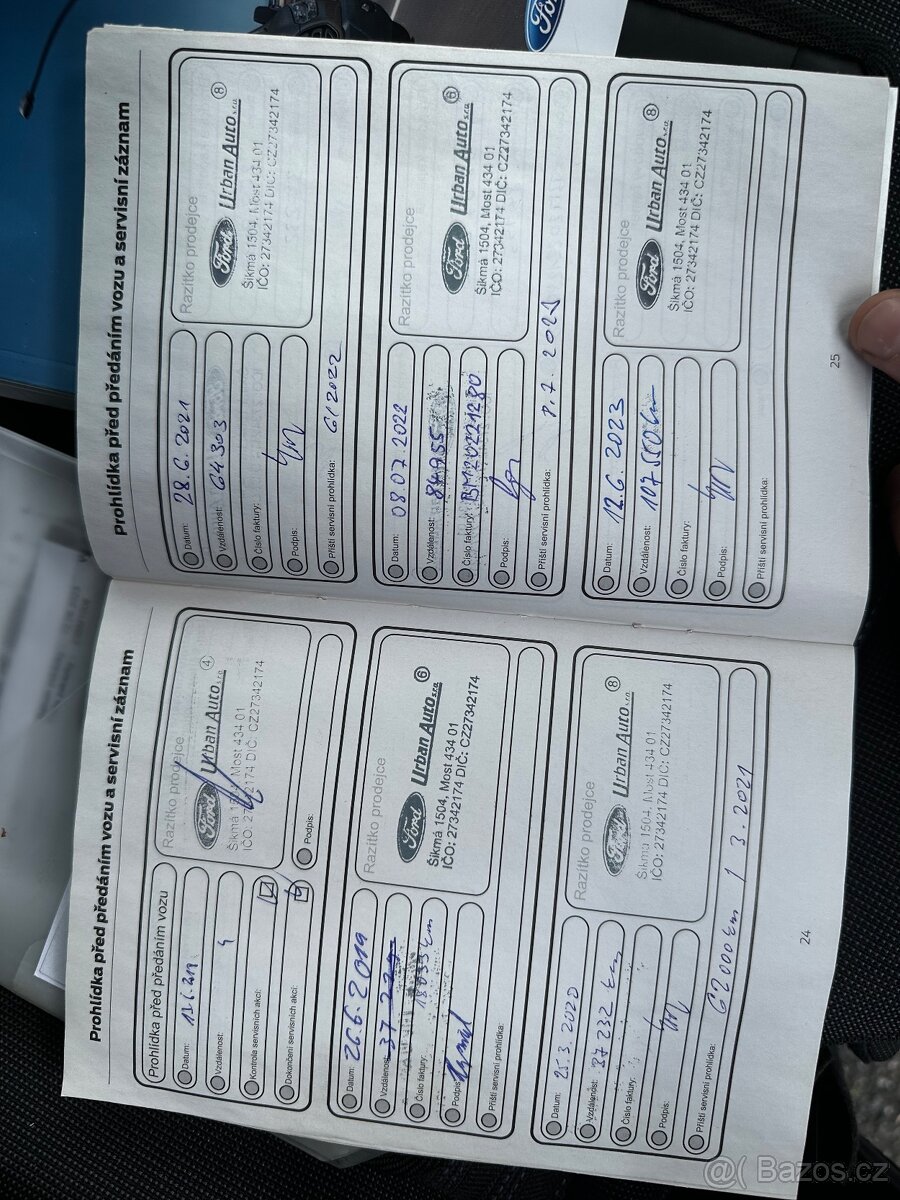 Prohlídka před předáním vozu a servisní záznam
Prohlídka před předáním vozu
Datum:
Vzdálenost: 4
Kontrola servisních akcí:
Dokončení servisních akcí:
Razítko prodejce
Ford Urban Auto s.r.o. 4
Šikmá 1504, Most 434 01
IČO: 27342174 DIČ: CZ27342174
Podpis:
Datum: 26.6.2019
Vzdálenost:
Číslo faktury: 18033 km
Podpis:
Příští servisní prohlídka:
Razítko prodejce
Ford Urban Auto s.r.o. 6
Šikmá 1504, Most 434 01
IČO: 27342174 DIČ: CZ27342174
Datum: 25.3.2020
Vzdálenost: 37 232 km
Číslo faktury:
Podpis:
Příští servisní prohlídka: 62000 km / 3. 2021
Razítko prodejce
Ford Urban Auto s.r.o. 8
Šikmá 1504, Most 434 01
IČO: 27342174 DIČ: CZ27342174
24
Prohlídka před předáním vozu a servisní záznam
Datum: 28.6.2021
Vzdálenost: 64303
Číslo faktury:
Podpis:
Příští servisní prohlídka: 6/2022
Razítko prodejce
Ford Urban Auto s.r.o. 8
Šikmá 1504, Most 434 01
IČO: 27342174 DIČ: CZ27342174
Datum: 08.07.2022
Vzdálenost:
Číslo faktury:
Podpis:
Příští servisní prohlídka:
Razítko prodejce
Ford Urban Auto s.r.o. 6
Šikmá 1504, Most 434 01
IČO: 27342174 DIČ: CZ27342174
Datum: 12.6.2023
Vzdálenost: 107 550 km
Číslo faktury:
Podpis:
Příští servisní prohlídka:
Razítko prodejce
Ford Urban Auto s.r.o. 8
Šikmá 1504, Most 434 01
IČO: 27342174 DIČ: CZ27342174
25
@( Bazos.cz